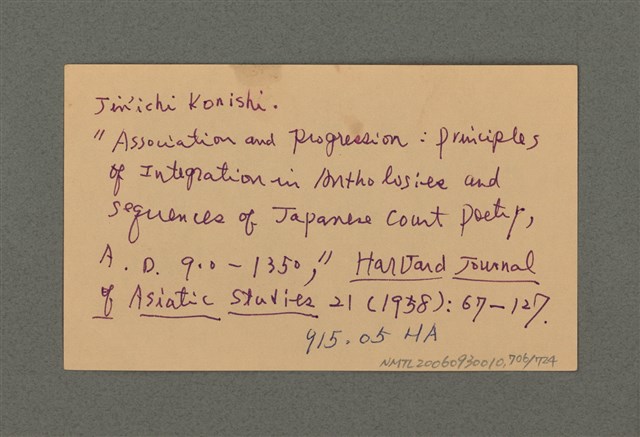 Jin'ichi Konishi.
"Association and Progression : Principles
of Integration in Anthologies and
Sequences of Japanese Court Poetry,
A. D. 900-1350," Harvard Journal
of Asiatic Studies 21 (1958): 67-127.
915.05 HA
NMTL20060930010,706/724